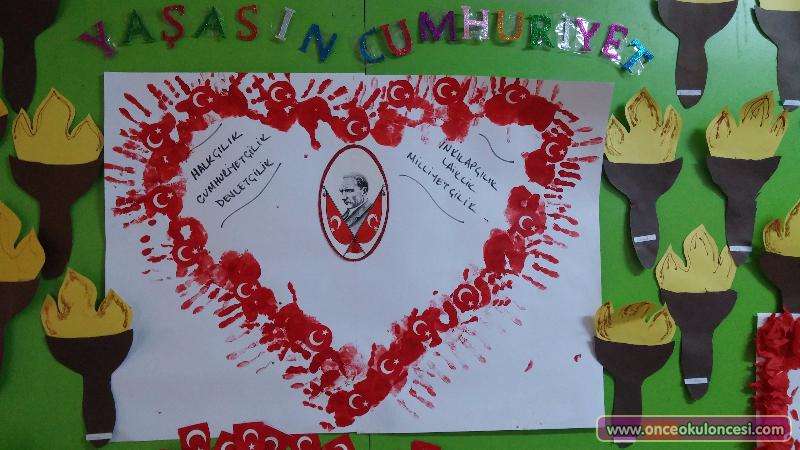 YAŞASIN CUMHURİYET
HALKÇILIK
CUMHURİYETÇİLİK
DEVLETÇİLİK
İNKILAPÇILIK
LAİKLİK
MİLLİYETÇİLİK
www.onceokuloncesi.com